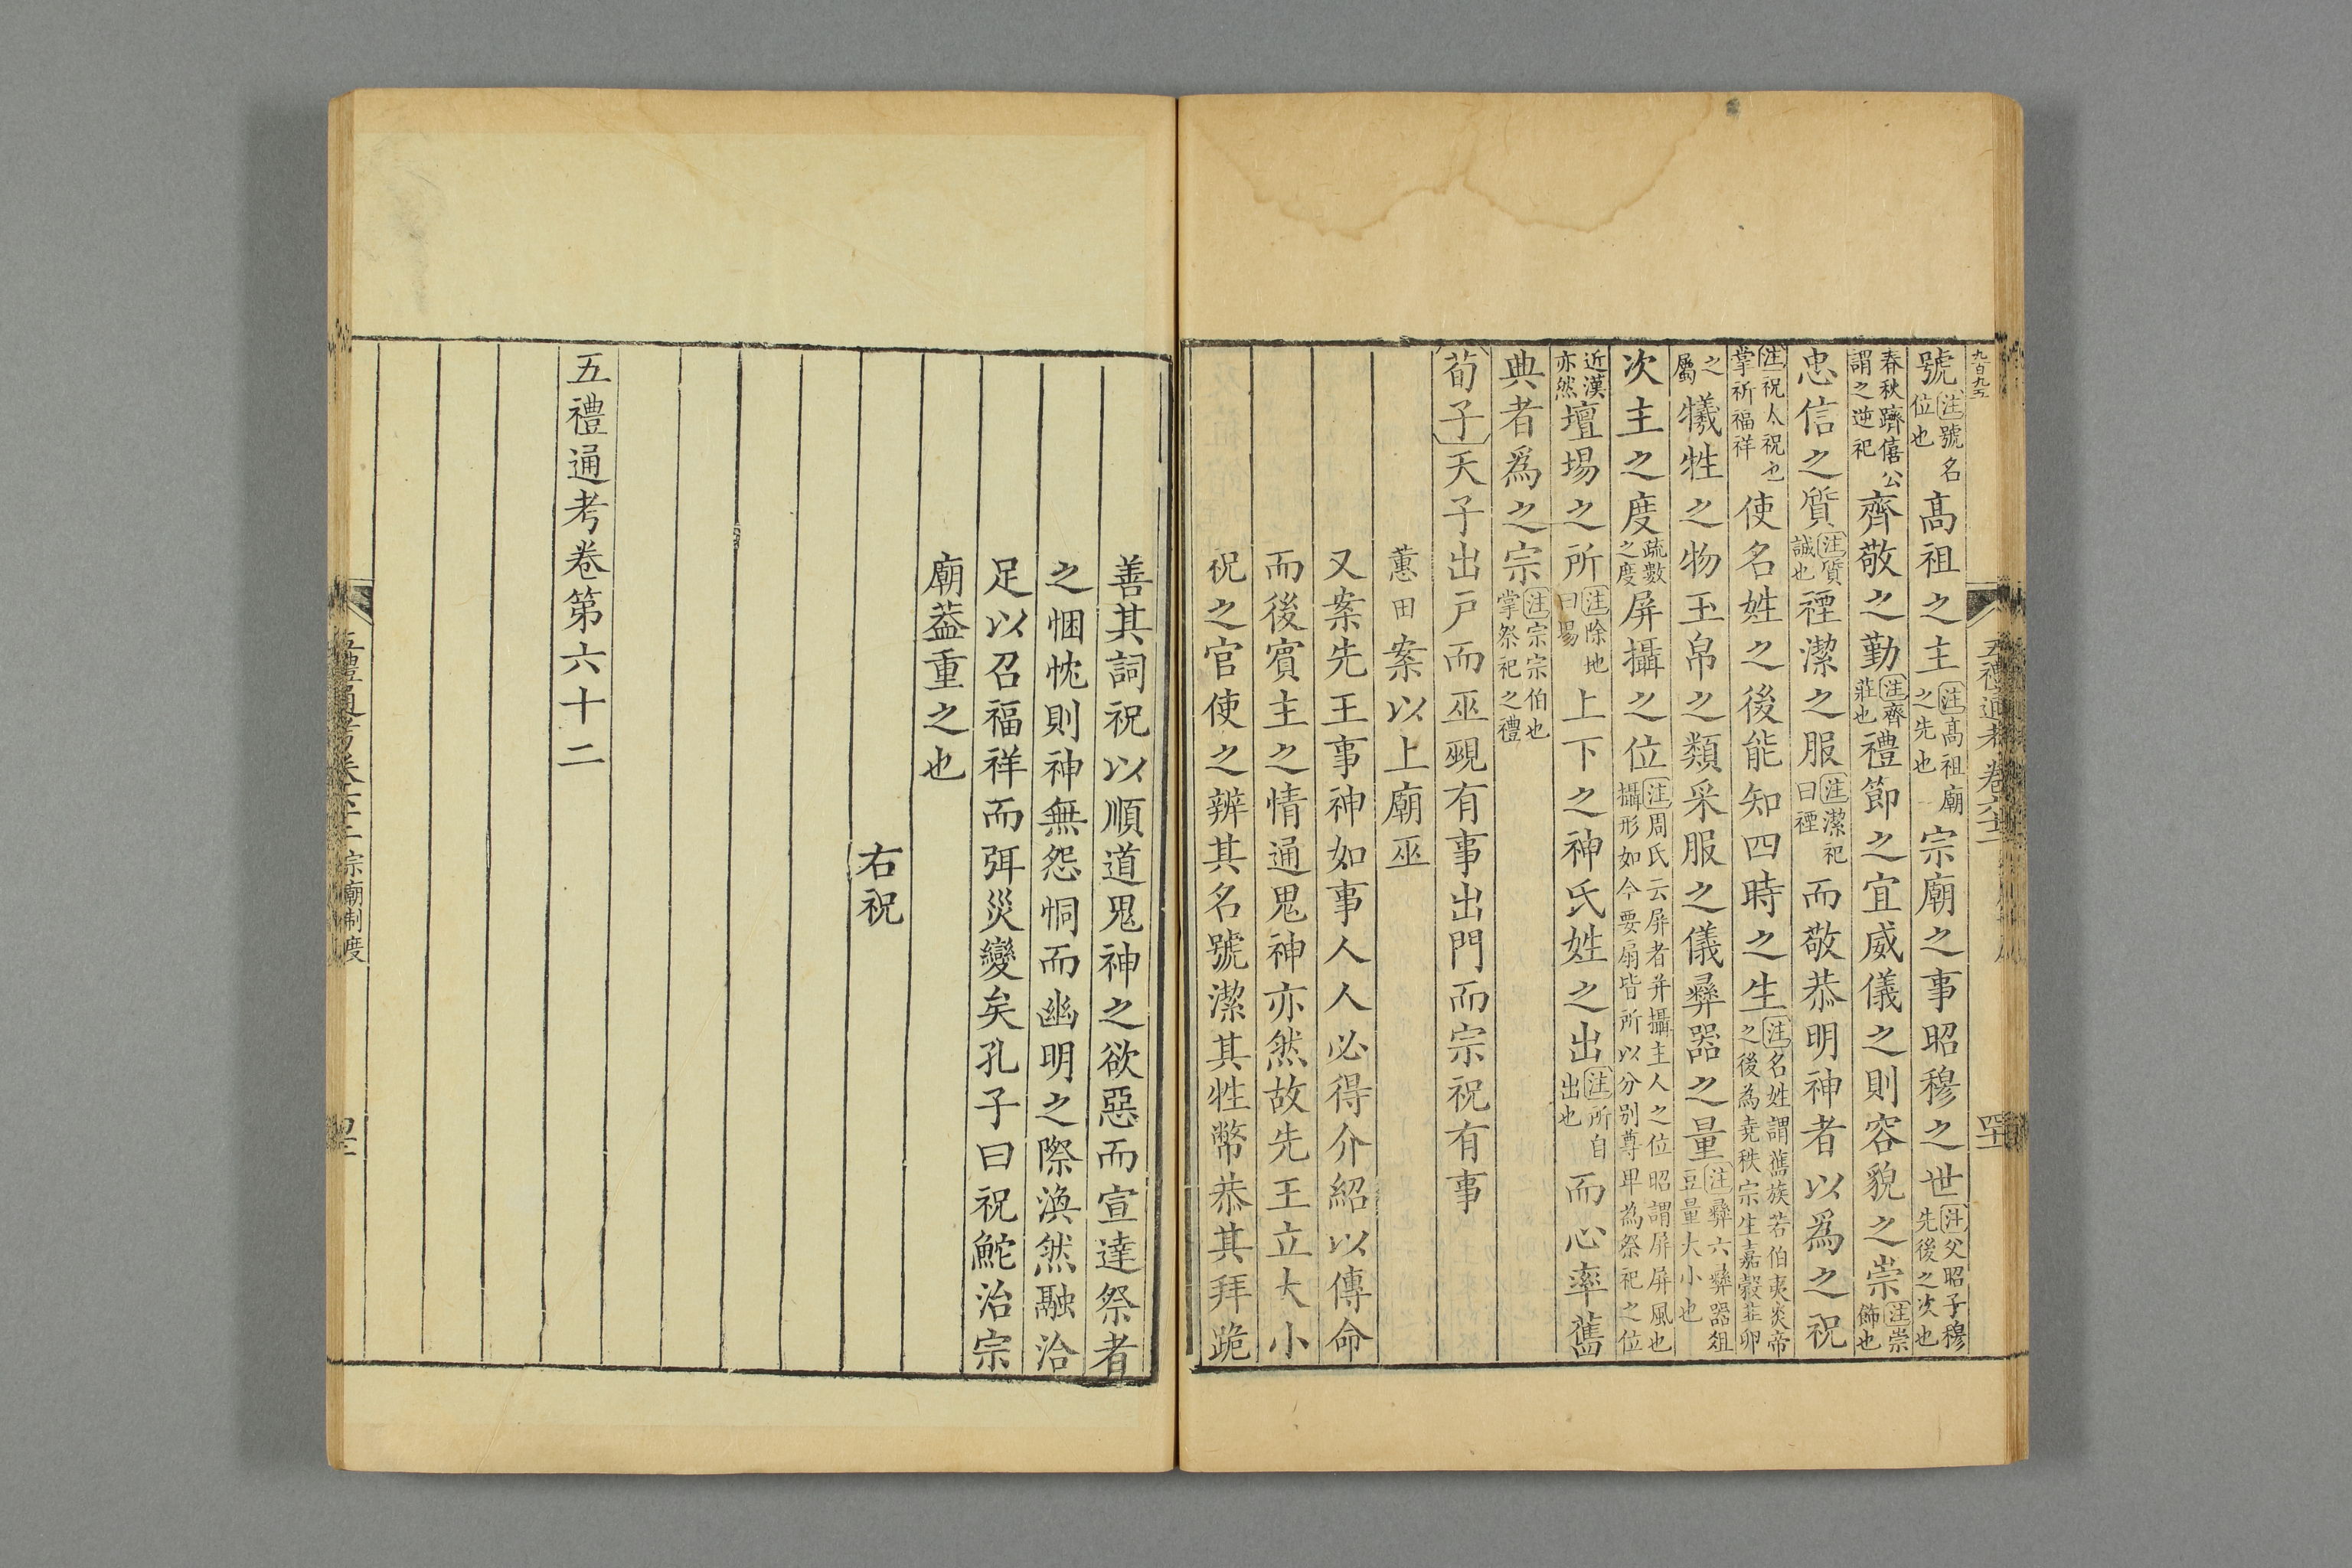 九百九五
號注號名位也高祖之主注高祖廟之先也宗廟之事昭穆之世注父昭子穆先後之次也
春秋躋僖公謂之逆祀齊敬之勤注齊莊也禮節之宜威儀之則容貌之崇注崇飾也
忠信之質注質誠也禋潔之服注潔祀曰禋而敬恭明神者以爲之祝
注祝太祝也掌祈福祥使名姓之後能知四時之生注名姓謂舊族若伯夷炎帝之後為堯秩宗生嘉穀韭卵
之屬犧牲之物玉帛之類采服之儀彝器之量注彝六彝器俎豆量大小也
次主之度疏數之度屏攝之位注周氏云屏者并攝主人之位昭謂屏屏風也攝形如今要扇皆所以分别尊卑為祭祀之位
近漢亦然壇場之所注除地曰場上下之神氏姓之出注所自出也而心率舊
典者爲之宗注宗宗伯也掌祭祀之禮
荀子天子出戸而巫覡有事出門而宗祝有事
蕙田案以上廟巫
又案先王事神如事人人必得介紹以傳命
而後賓主之情通鬼神亦然故先王立大小
祝之官使之辨其名號潔其牲幣恭其拜跪
五禮通考卷六十二
善其詞祝以順道鬼神之欲惡而宣達祭者
之悃忱則神無怨恫而幽明之際渙然融洽
足以召福祥而弭災變矣孔子曰祝鮀治宗
廟葢重之也
右祝
五禮通考卷第六十二
五禮通考卷六十二 宗廟制度